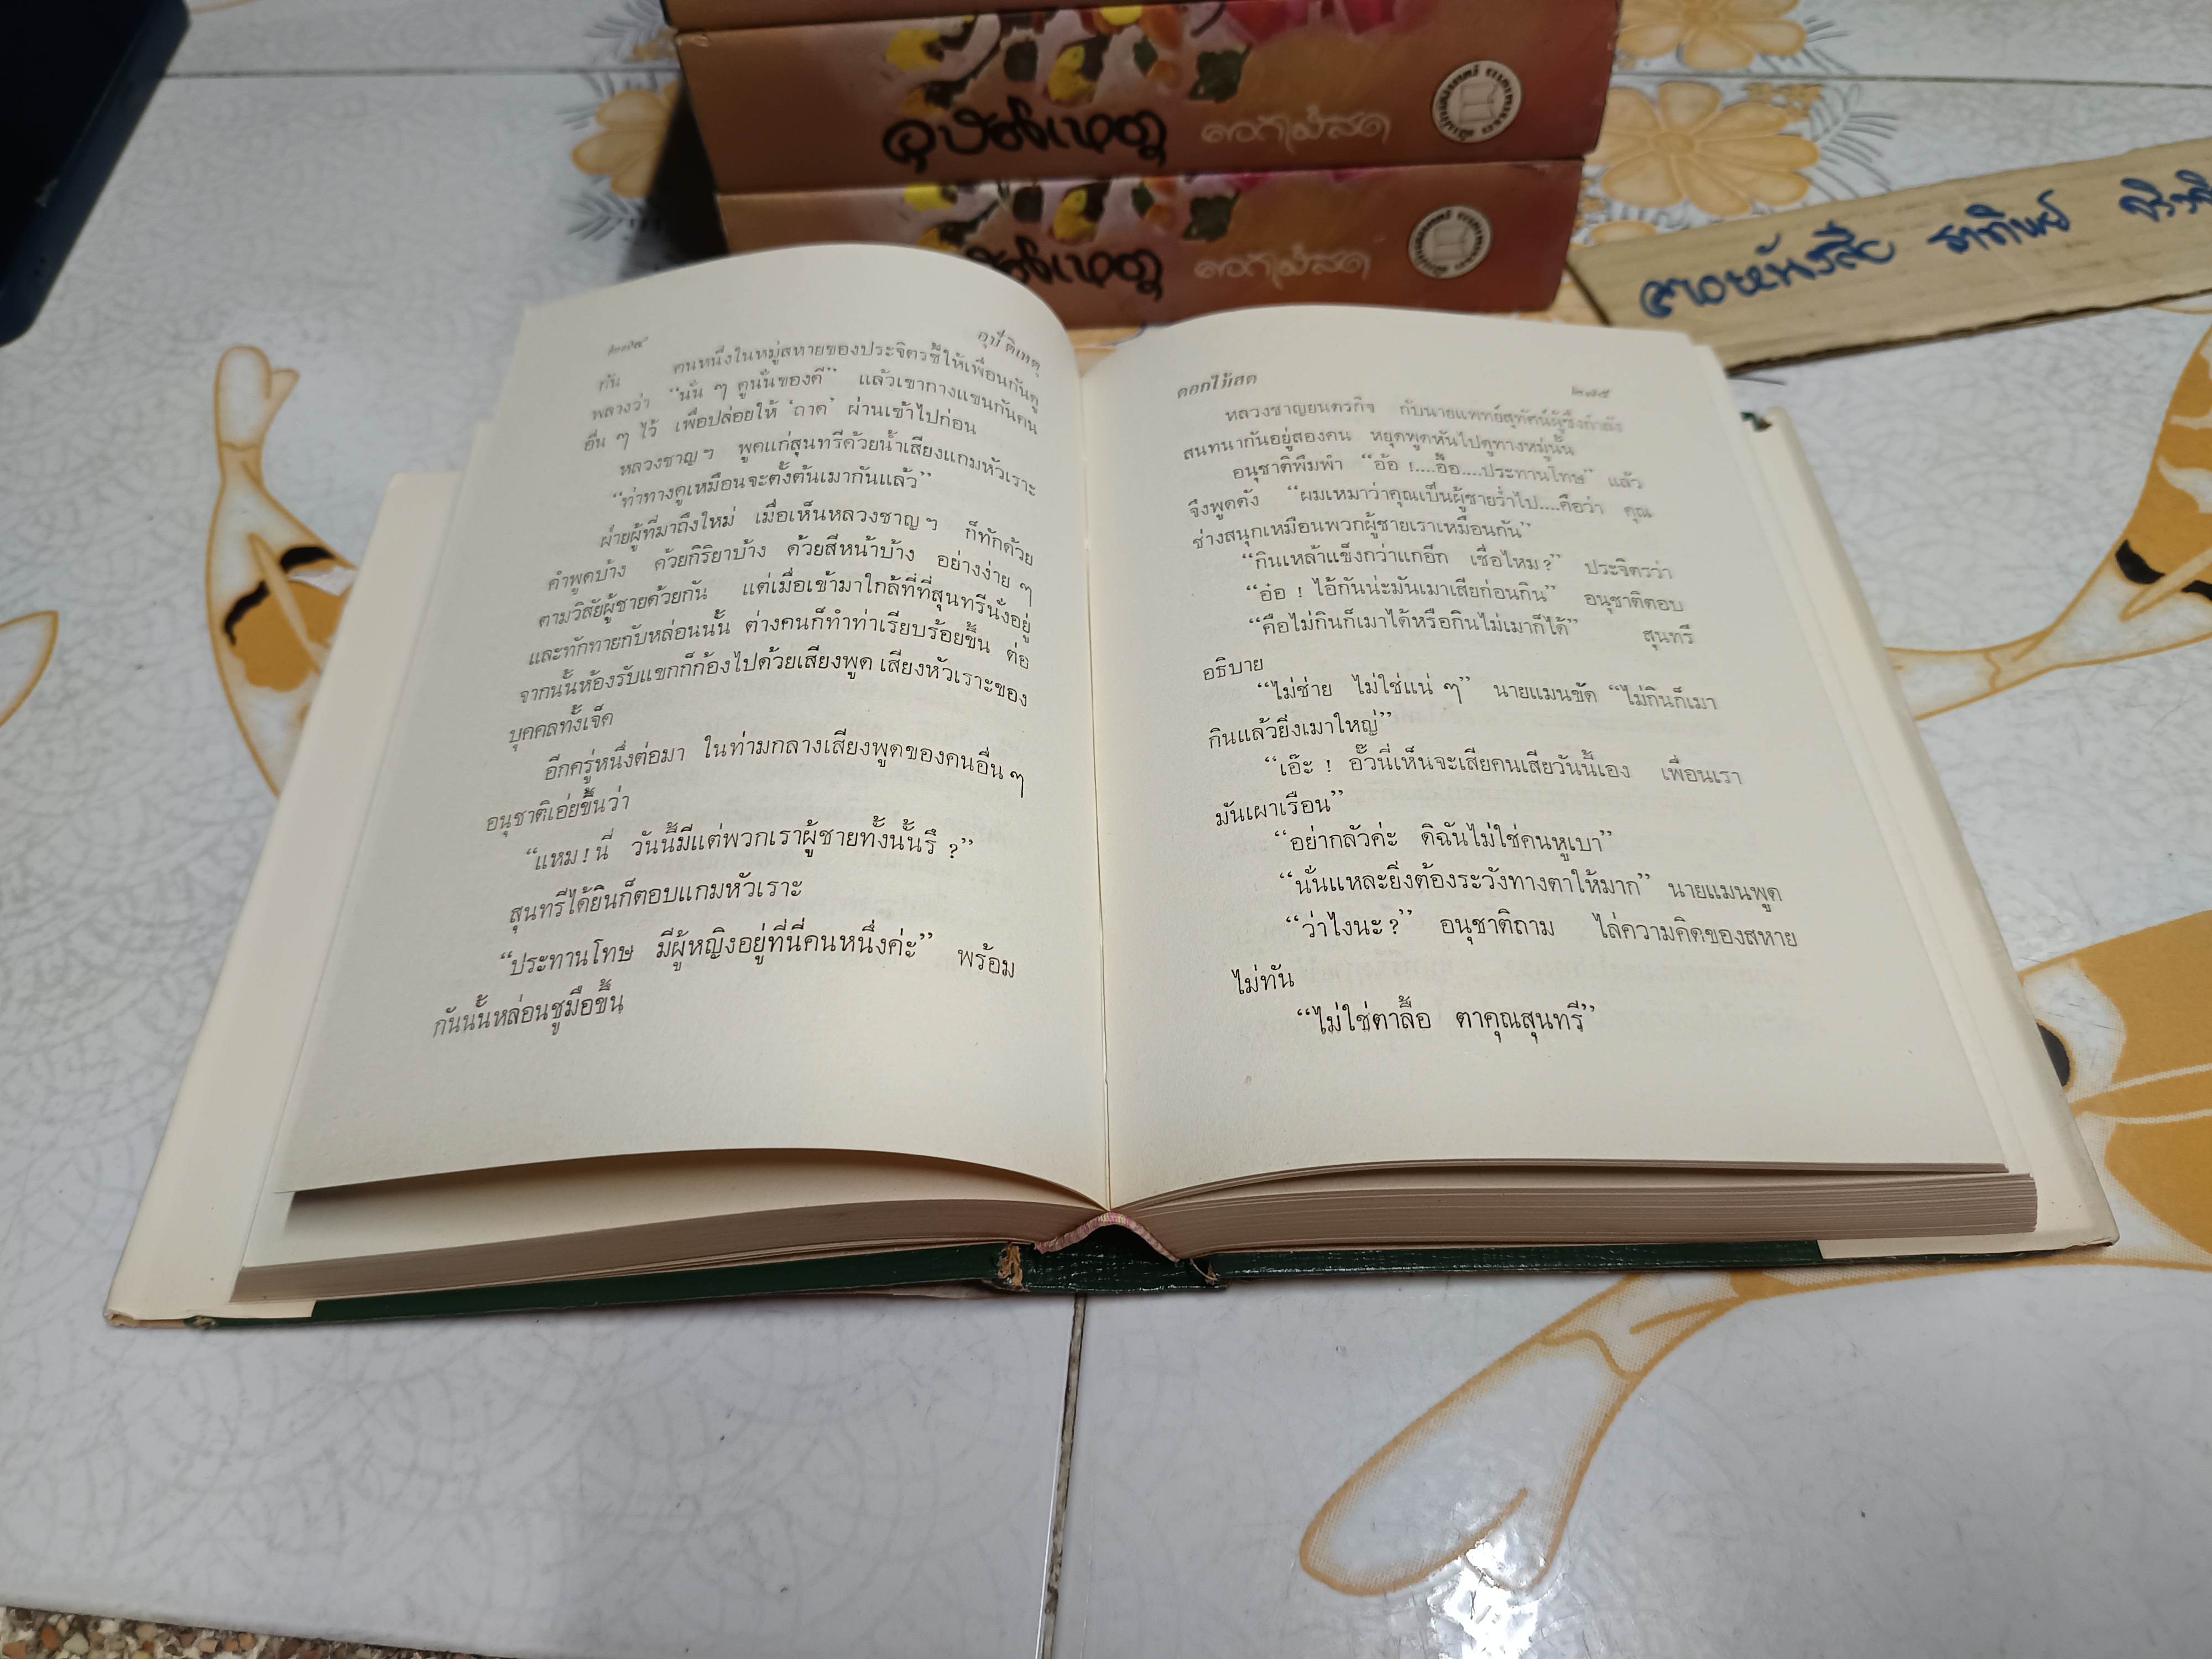 อุบัติเหตุ ดอกไม้สด
ดอกไม้สด
ขายหนังสือ
อุบัติเหตุ
กัน คนหนึ่งในหมู่สหายของประจิตรชี้ให้เพื่อนกันดู
พลางว่า “นั่น ๆ ดูนั่นของดี” แล้วเขากางแขนกันคน
อื่น ๆ ไว้ เพื่อปล่อยให้ ‘ถาด’ ผ่านเข้าไปก่อน
หลวงชาญฯ พูดแก่สุนทรีด้วยน้ำเสียงแกมหัวเราะ
“ท่าทางดูเหมือนจะตั้งต้นเมากันแล้ว”
ฝ่ายผู้ที่มาถึงใหม่ เมื่อเห็นหลวงชาญฯ ก็ทักด้วย
คำพูดบ้าง ด้วยกิริยาบ้าง ด้วยสีหน้าบ้าง อย่างง่าย ๆ
ตามวิสัยผู้ชายด้วยกัน แต่เมื่อเข้ามาใกล้ที่ที่สุนทรีนั่งอยู่
และทักทายกับหล่อนนั้น ต่างคนก็ทำท่าเรียบร้อยขึ้น ต่อ
จากนั้นห้องรับแขกก็ก้องไปด้วยเสียงพูด เสียงหัวเราะของ
บุคคลทั้งเจ็ด
อีกครู่หนึ่งต่อมา ในท่ามกลางเสียงพูดของคนอื่น ๆ
อนุชาติเอ่ยขึ้นว่า
“แหม ! นี่ วันนี้มีแต่พวกเราผู้ชายทั้งนั้นรึ ?”
สุนทรีได้ยินก็ตอบแกมหัวเราะ
“ประทานโทษ มีผู้หญิงอยู่ที่นี่คนหนึ่งค่ะ” พร้อม
กันนั้นหล่อนชูมือขึ้น
ดอกไม้สด ๒๗๕
หลวงชาญยนตรกิจ กับนายแพทย์สุทัศน์ผู้ซึ่งกำลัง
สนทนากันอยู่สองคน หยุดพูดหันไปดูทางหมู่นั้น
อนุชาติพึมพำ “อ้อ !....อื้อ....ประทานโทษ” แล้ว
จึงพูดดัง “ผมเหมาว่าคุณเป็นผู้ชายร่ำไป....คือว่า คุณ
ช่างสนุกเหมือนพวกผู้ชายเราเหมือนกัน”
“กินเหล้าแข็งกว่าแกอีก เชื่อไหม ?” ประจิตรว่า
“อ๋อ ! ไอ้กันน่ะมันเมาเสียก่อนกิน” อนุชาติตอบ
“คือไม่กินก็เมาได้หรือกินไม่เมาก็ได้” สุนทรี
อธิบาย
“ไม่ช่าย ไม่ใช่แน่ ๆ” นายแมนขัด “ไม่กินก็เมา
กินแล้วยิ่งเมาใหญ่”
“เอ๊ะ ! อั๊วนี่เห็นจะเสียคนเสียวันนี้เอง เพื่อนเรา
มันเผาเรือน”
“อย่ากลัวค่ะ ดิฉันไม่ใช่คนหูเบา”
“นั่นแหละยิ่งต้องระวังทางตาให้มาก” นายแมนพูด
“ว่าไงนะ ?” อนุชาติถาม ไล่ความคิดของสหาย
ไม่ทัน
“ไม่ใช่ตาลื้อ ตาคุณสุนทรี”